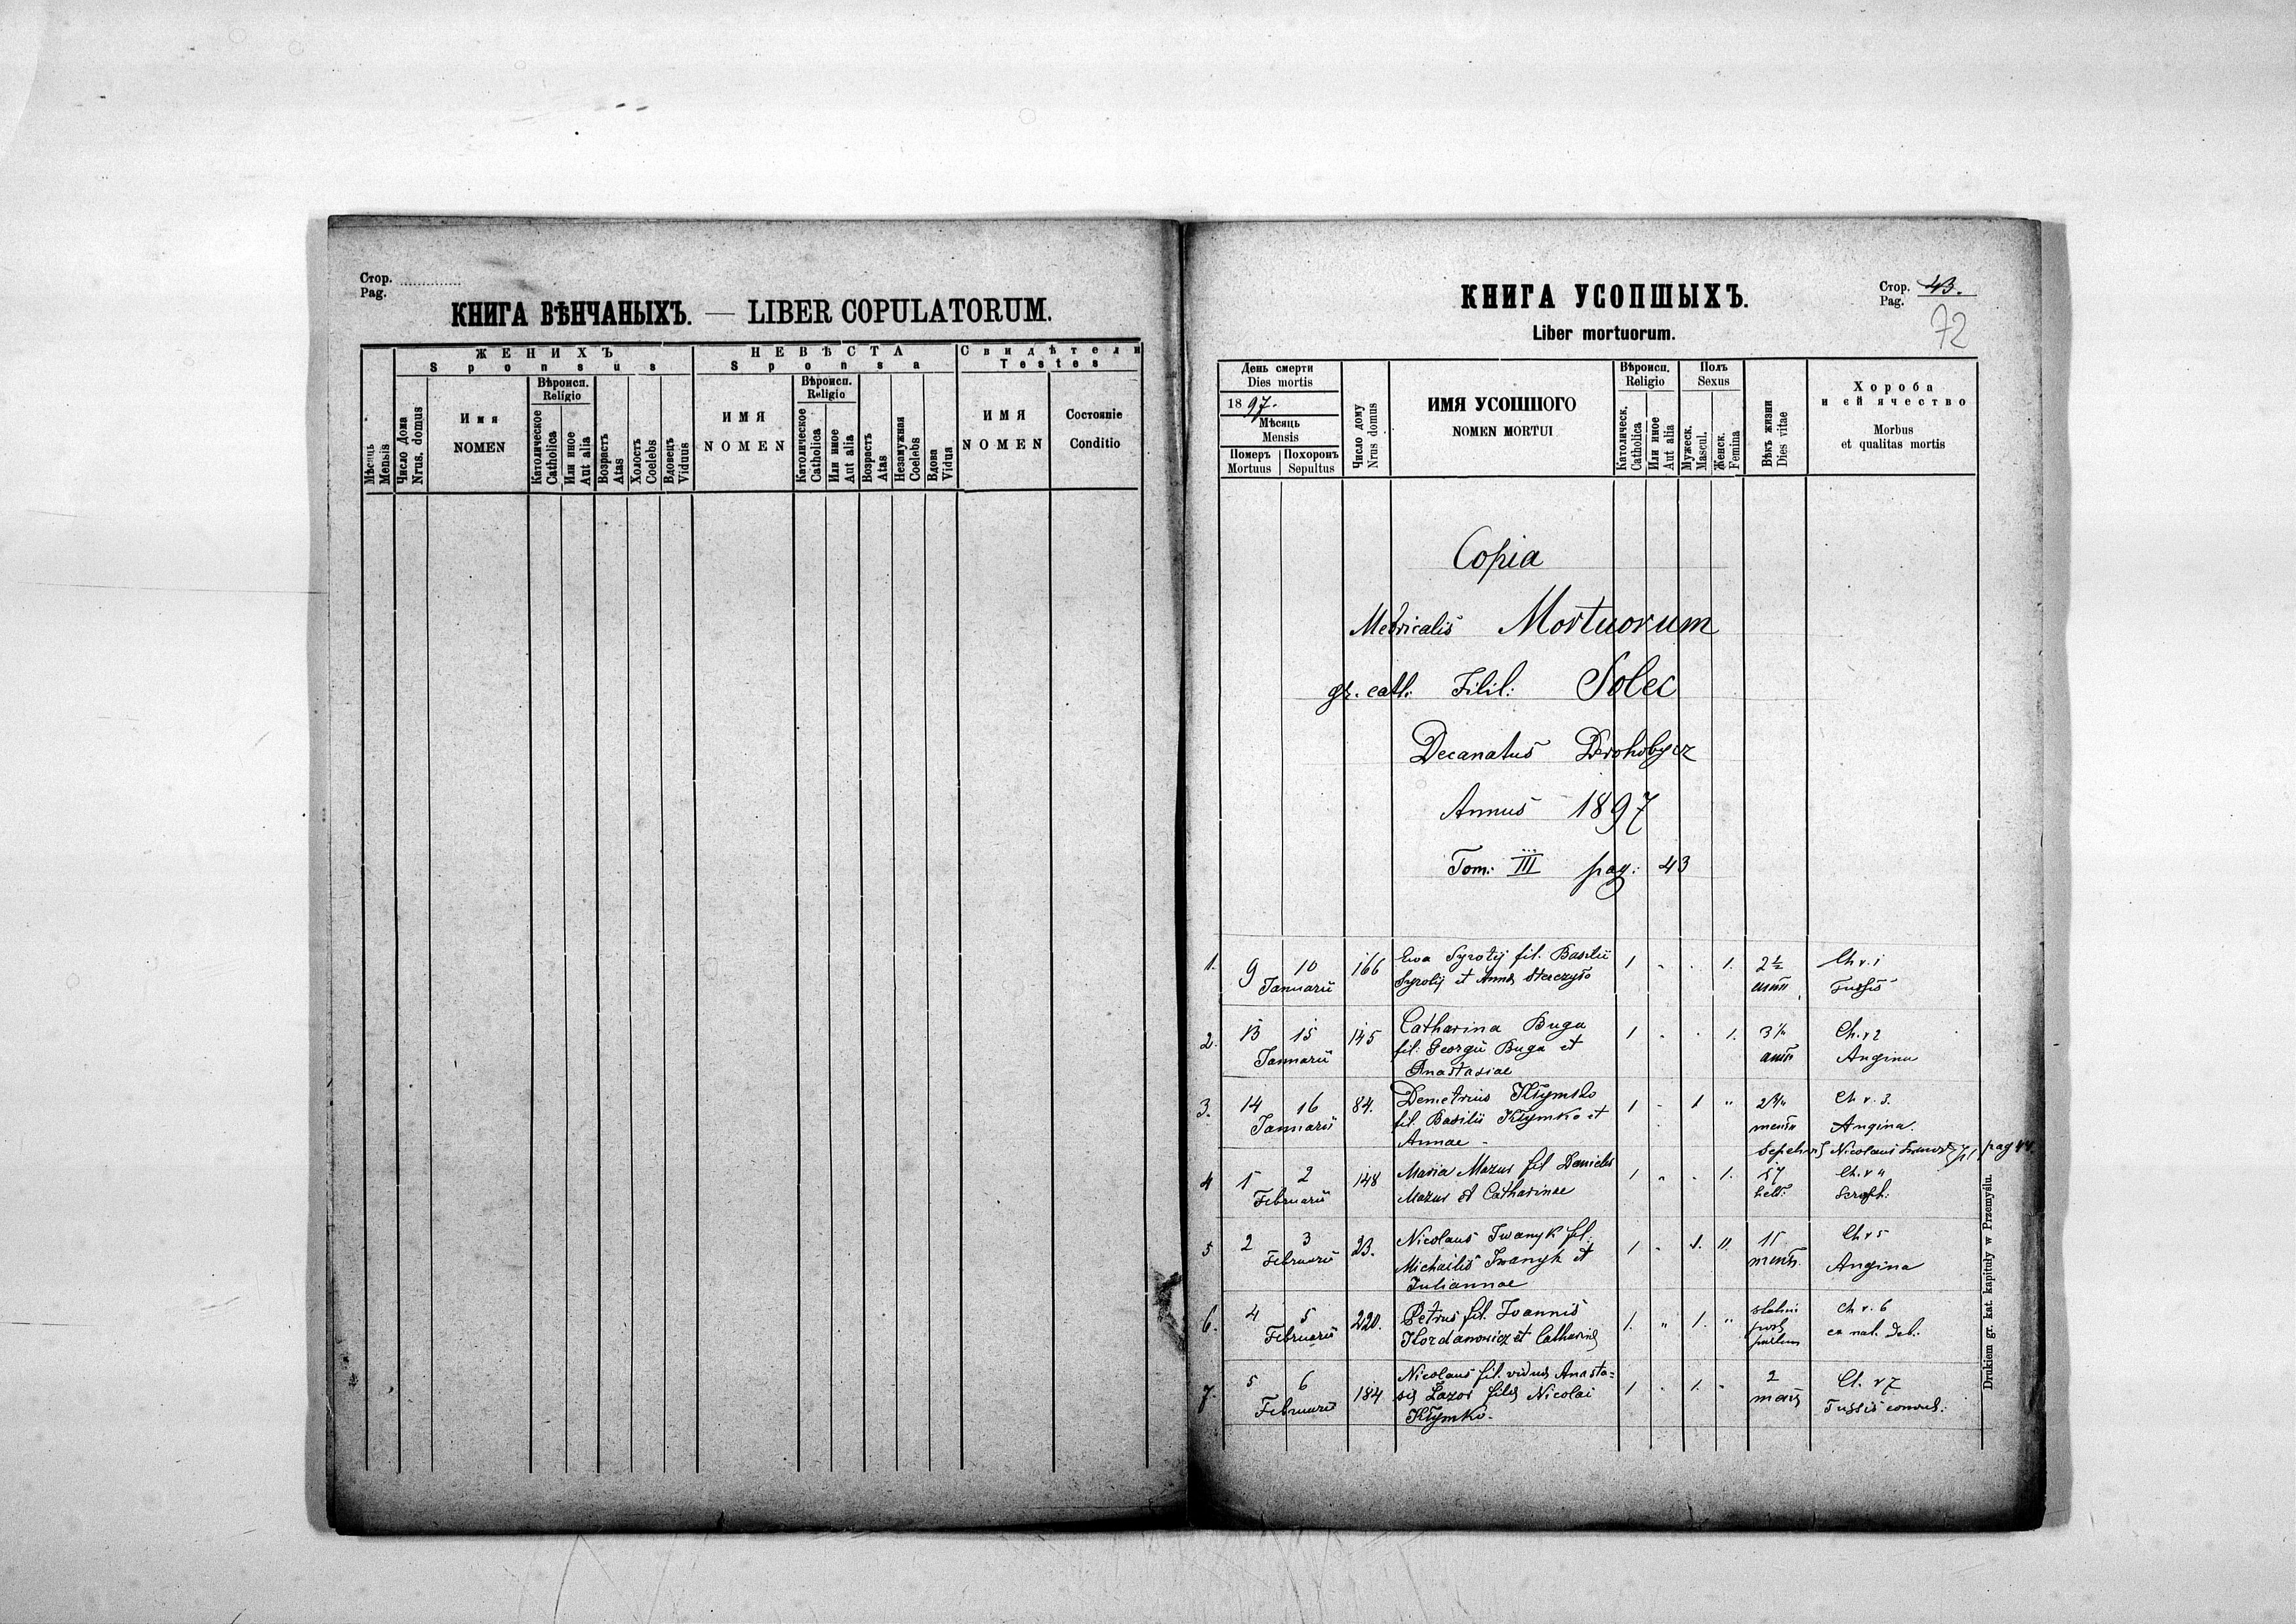 Стор.
Pag.
КНИГА ВѢНЧАНЫХЪ. — LIBER COPULATORUM.
Мѣсяць Mensis
Число Дома Nrus. domus
ЖЕНИХЪ
Sponsus
Имя
NOMEN
Вѣроисп.
Religio
Католическое Catholica
Или иное Aut alia
Возрастъ Atas
Холостъ Coelebs
Вдовець Viduus
НЕВѢСТА
Sponsa
ИМЯ
NOMEN
Вѣроисп.
Religio
Католическое Catholica
Или иное Aut alia
Возрастъ Atas
Незамужная Coelebs
Вдова Vidua
Свидѣтели
Testes
ИМЯ
NOMEN
Состояніе
Conditio
КНИГА УСОПШЫХЪ.
Liber mortuorum.
Стор. 43.
Pag.
72
День смерти
Dies mortis
1897.
Мѣсяць
Mensis
Померъ
Mortuus
Похоронъ
Sepultus
Число дому Nrus domus
ИМЯ УСОПШОГО
NOMEN MORTUI
Вѣроисп.
Religio
Католическ. Catholica
Или иное Aut alia
Полъ
Sexus
Мужеск. Mascul.
Женск. Femina
Вѣкъ жизни Dies vitae
Хороба
и єй ячество
Morbus
et qualitas mortis
Copia
Metricalis Mortuorum
gr. cath. Filil: Solec
Decanatus Drohobycz
Annus 1897
Tom: III pag: 43
1. 9 10 Januarii 166 Ewa Syrotij fil. Basilii
Syrotij et Anna 1 1. 2½ Ch r. 1
Tussis
2. 13 15 Januarii 145 Catharina Buga
fil. Georgii Buga et
Anastasiae 1 1. Ch. r 2
Angina
3. 14 16 Januarii 84. Demetrius Kłymko
fil. Basilii Kłymko et
Annae - 1 1 " Ch r. 3.
Angina.
Nicolaus pag 44
4 1 2 Februarii 148 Maria Mazur fil Danielis
Mazur et Catharinae 1 1. 17 Ch. r 4
5 2 3 Februarii 23. Nicolaus Iwanyk fil.
Michailis Iwanyk et
Juliannae 1 1. " Ch r 5
Angina
6. 4 5 Februarii 220. Petrus fil. Joannis
Kordanowicz et Catharina 1. " 1. " statim
post
partum ch r. 6
ex nat. Deb.
7. 5 6 Februarii 184. Nicolaus fil. viduae Anasta=
sia Łazor filia Nicolai
Kłymko. 1 1. 2 Ch. r 7
Tussis convul:
Drukiem gr. kat. kapituły w Przemyślu.